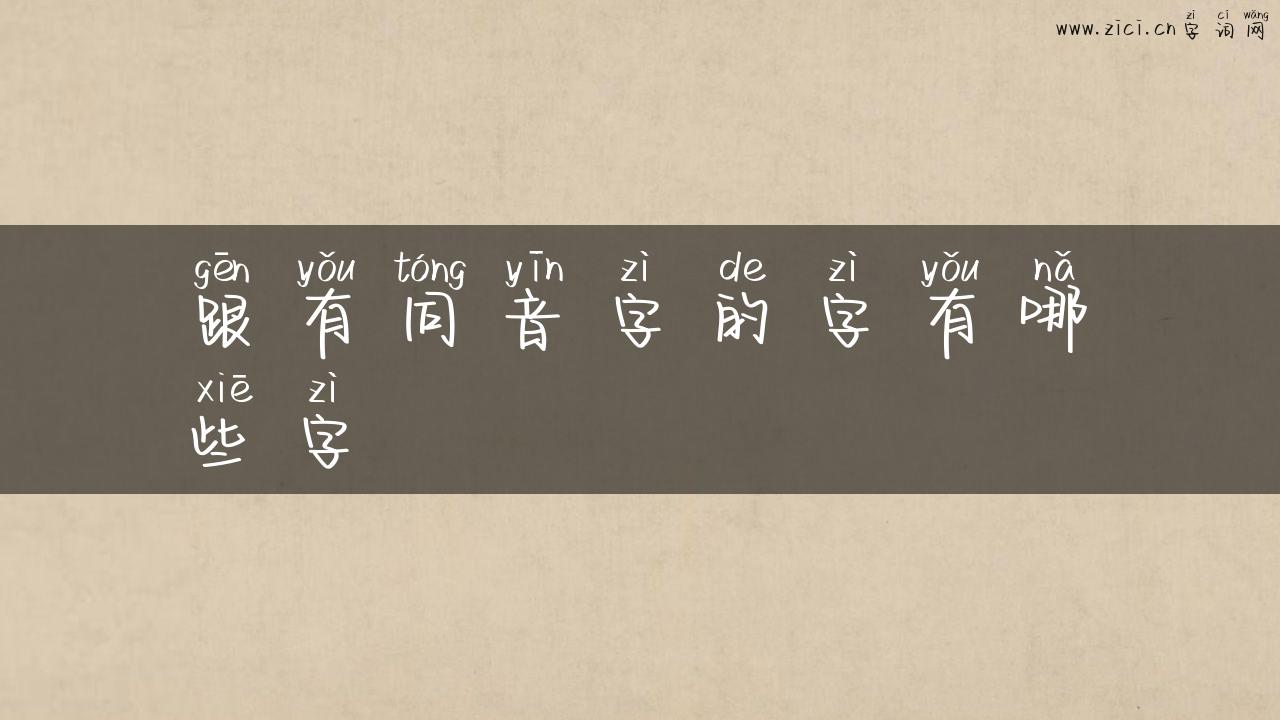 zì cí wǎng
www.zici.cn 字词网
gēn yǒu tóng yīn zì de zì yǒu nǎ
跟有同音字的字有哪
xiē zì
些字